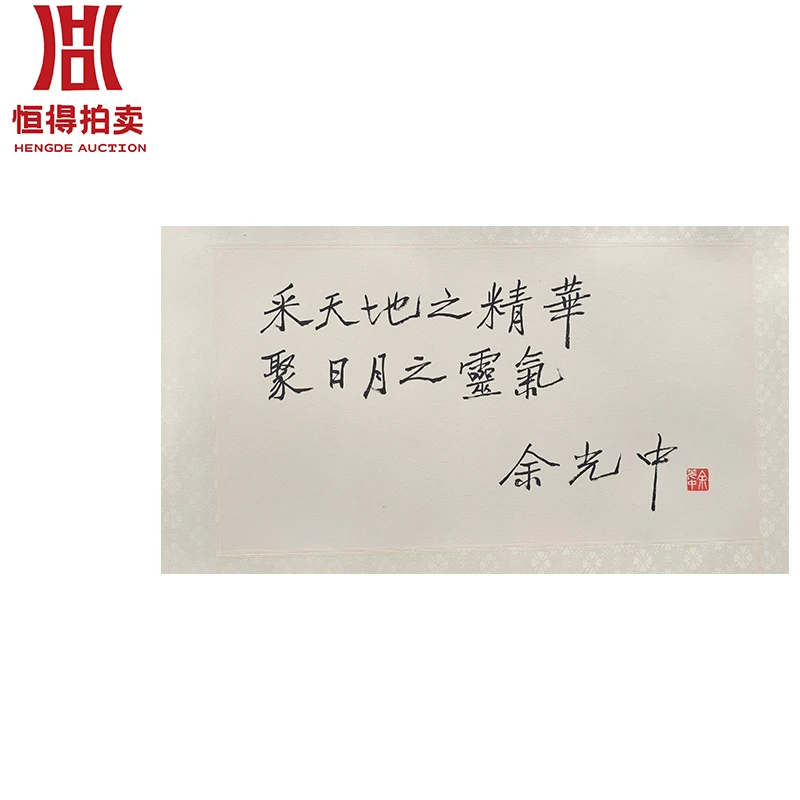 恒得拍卖
HENGDE AUCTION
采天地之精華
聚日月之靈氣
余光中
余光中